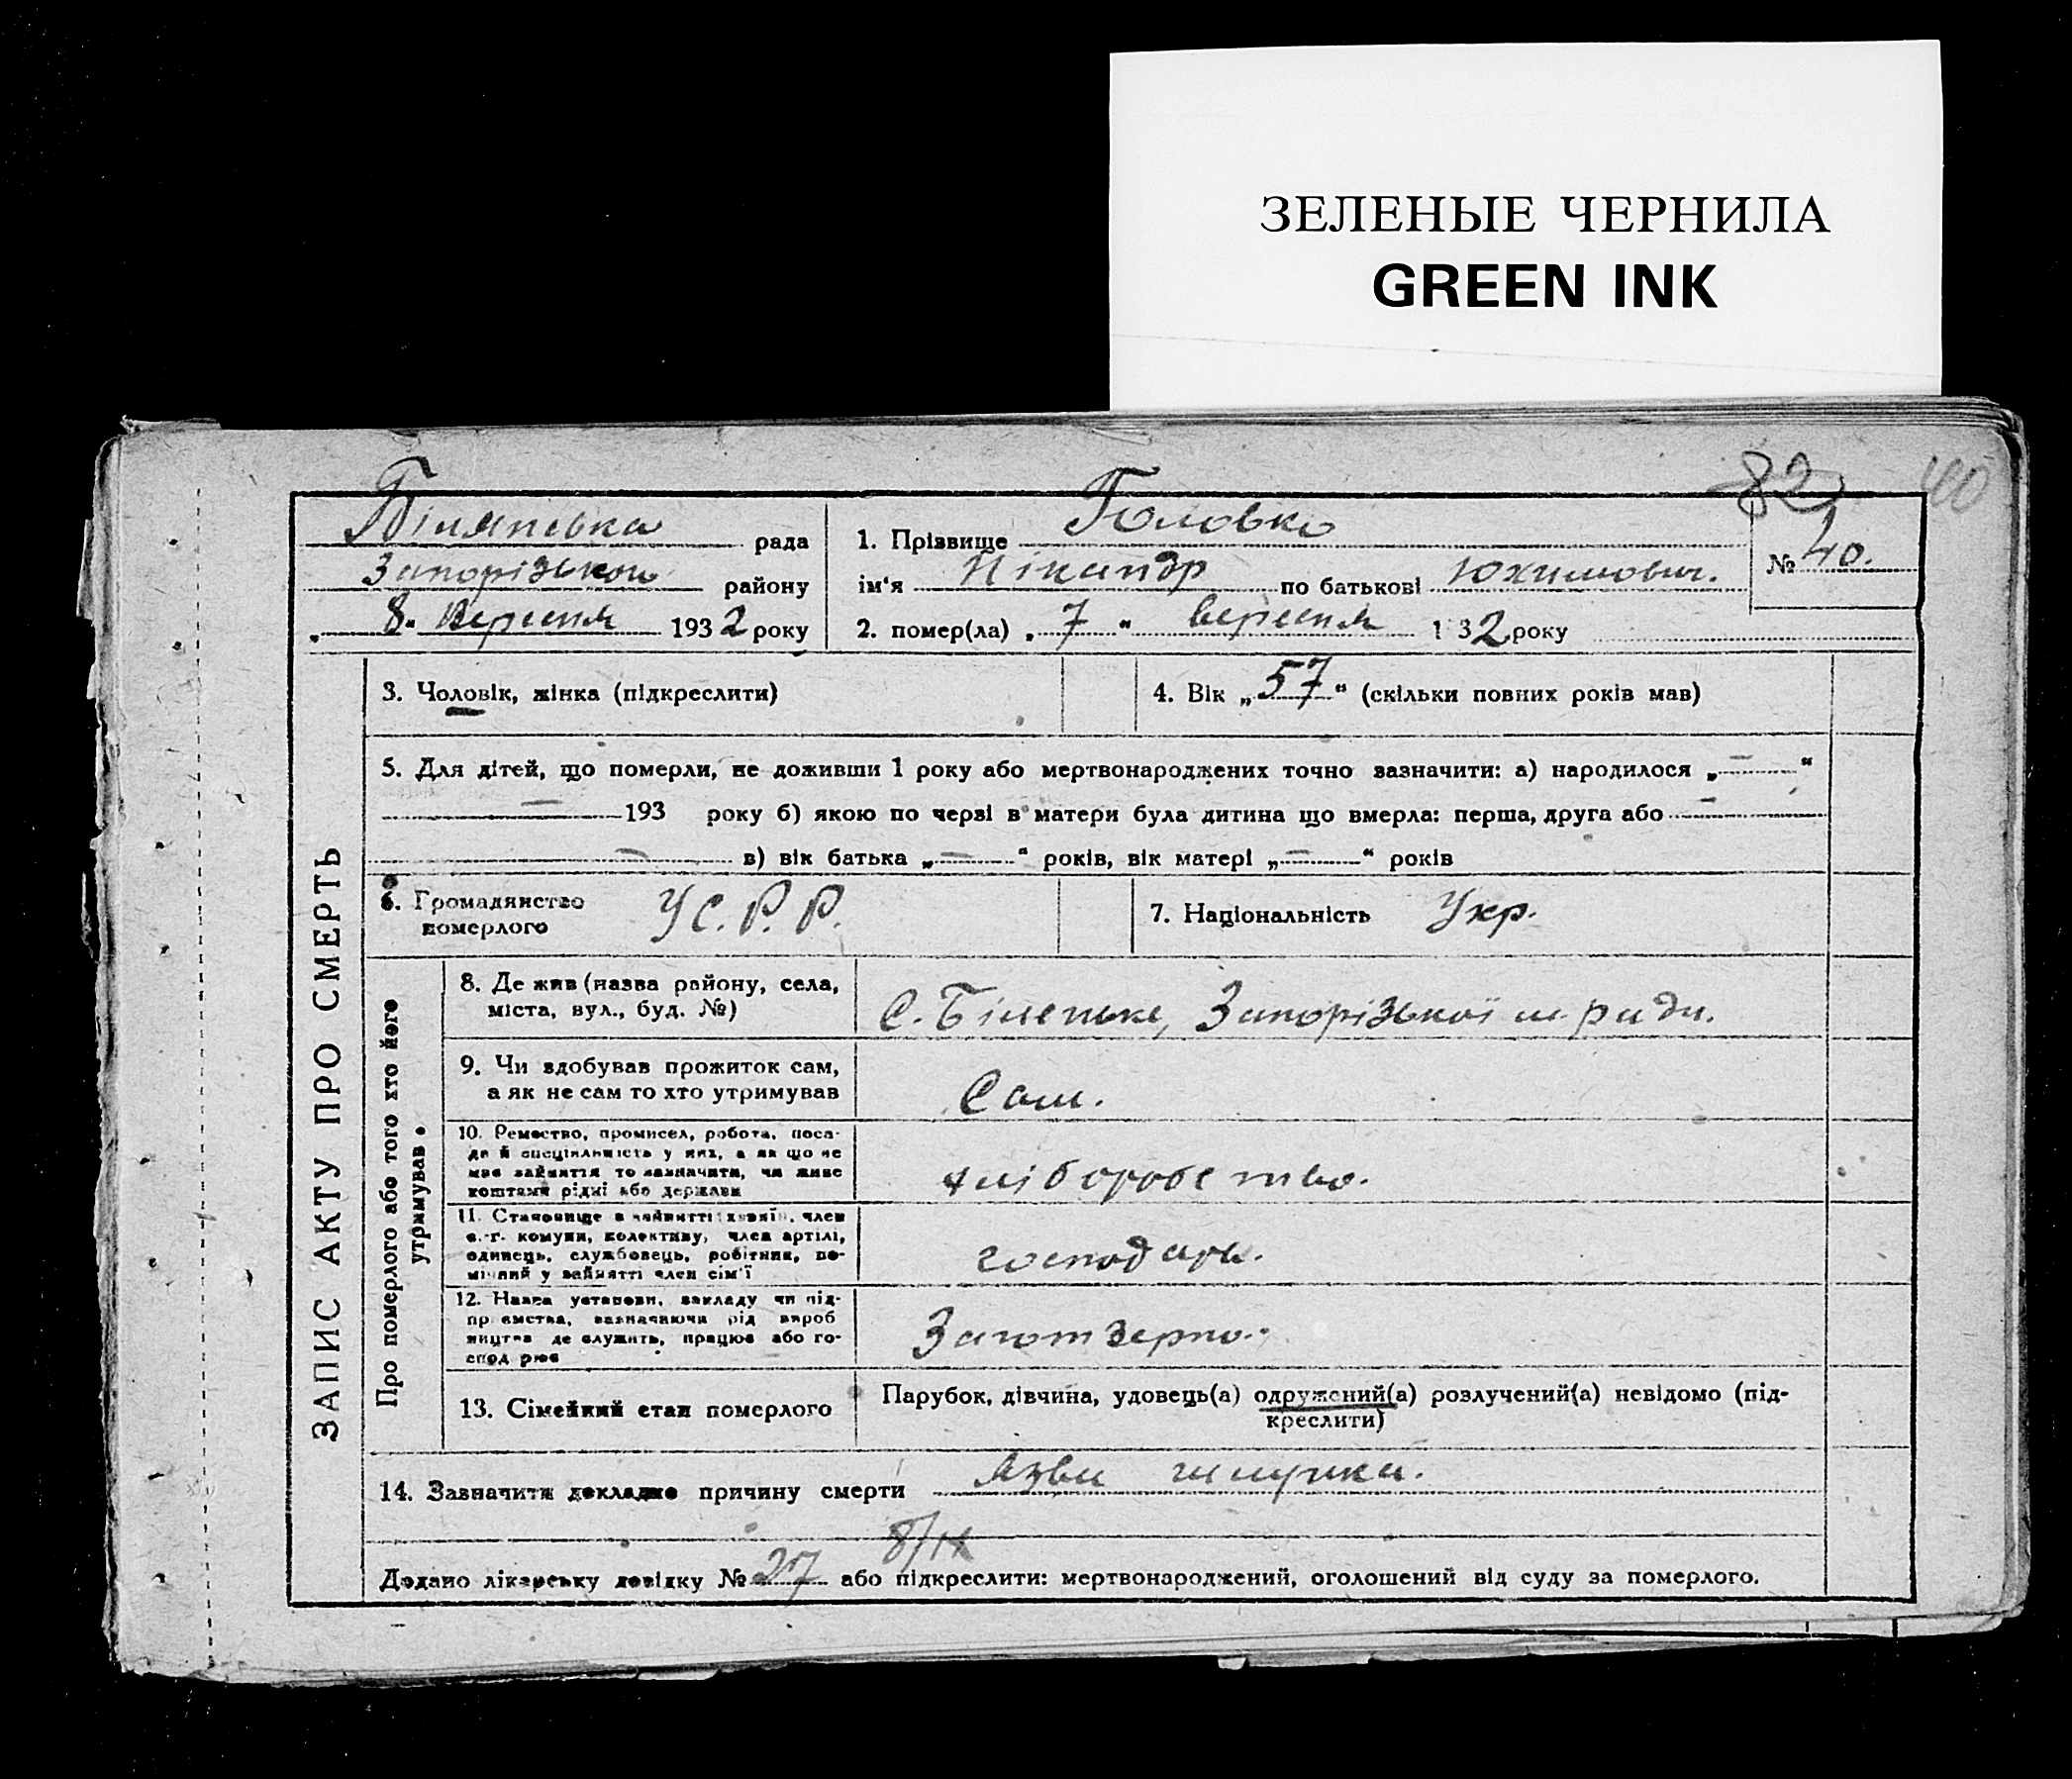 ЗЕЛЕНЫЕ ЧЕРНИЛА
GREEN INK
82 40
Біляпська рада
Запорізького району
„ 8 " Вересня 1932 року
1. Прізвище Головко
ім'я Нікандр по батькові Юхимович.
№ 40.
2. помер(ла) „ 7 " вересня 1 32 року
ЗАПИС АКТУ ПРО СМЕРТЬ
3. Чоловік, жінка (підкреслити)
4. Вік „ 57 " (скільки повних років мав)
5. Для дітей, що померли, не доживши 1 року або мертвонароджених точно зазначити: а) народилося „ — "
— 193 року б) якою по черзі в матери була дитина що вмерла: перша, друга або —
— в) вік батька „ — " років, вік матері „ — " років
6. Громадянство
померлого
У С. Р. Р.
7. Національність Укр.
Про померлого або того хто його
утримував
8. Де жив (назва району, села,
міста, вул., буд. №)
С. Біленьке, Запорізької м. ради.
9. Чи здобував прожиток сам,
а як не сам то хто утримував
Сам.
10. Ремество, промисел, робота, поса-
да й спеціяльність у них, а як що не
мав заняття то зазначити, чи живе
коштами рідні або держави
хліборобство.
11. Становище в занятті: хазяїн, член
с.-г. комуни, колективу, член артілі,
одинець, службовець, робітник, по-
мічний у занятті член сім'ї
господарь.
12. Назва установи, закладу чи під-
приємства, зазначаючи рід вироб
ництва де служить, працює або го-
спод рює
Заготзерно.
13. Сімейний стан померлого
Парубок, дівчина, удовець(а) одружений(а) розлучений(а) невідомо (під-
креслити)
14. Зазначити докладно причину смерти Язви шлунка.
8/IX
Додано лікарську довідку № 27 або підкреслити: мертвонароджений, оголошений від суду за померлого.